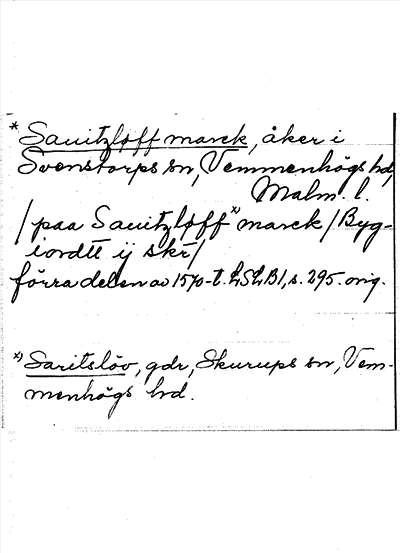 * Sauitzløff marck, åker i
Svenstorps sn, Vemmenhögs hd,
Malm. l.
/paa Sauitzløff*) marck/Byg-
iordtt ij skr/
förra delen av 1570-t. LSLB1, s. 295. orig.
*) Saritslöv, gdr, Skurups sn, Vem-
menhögs hd.